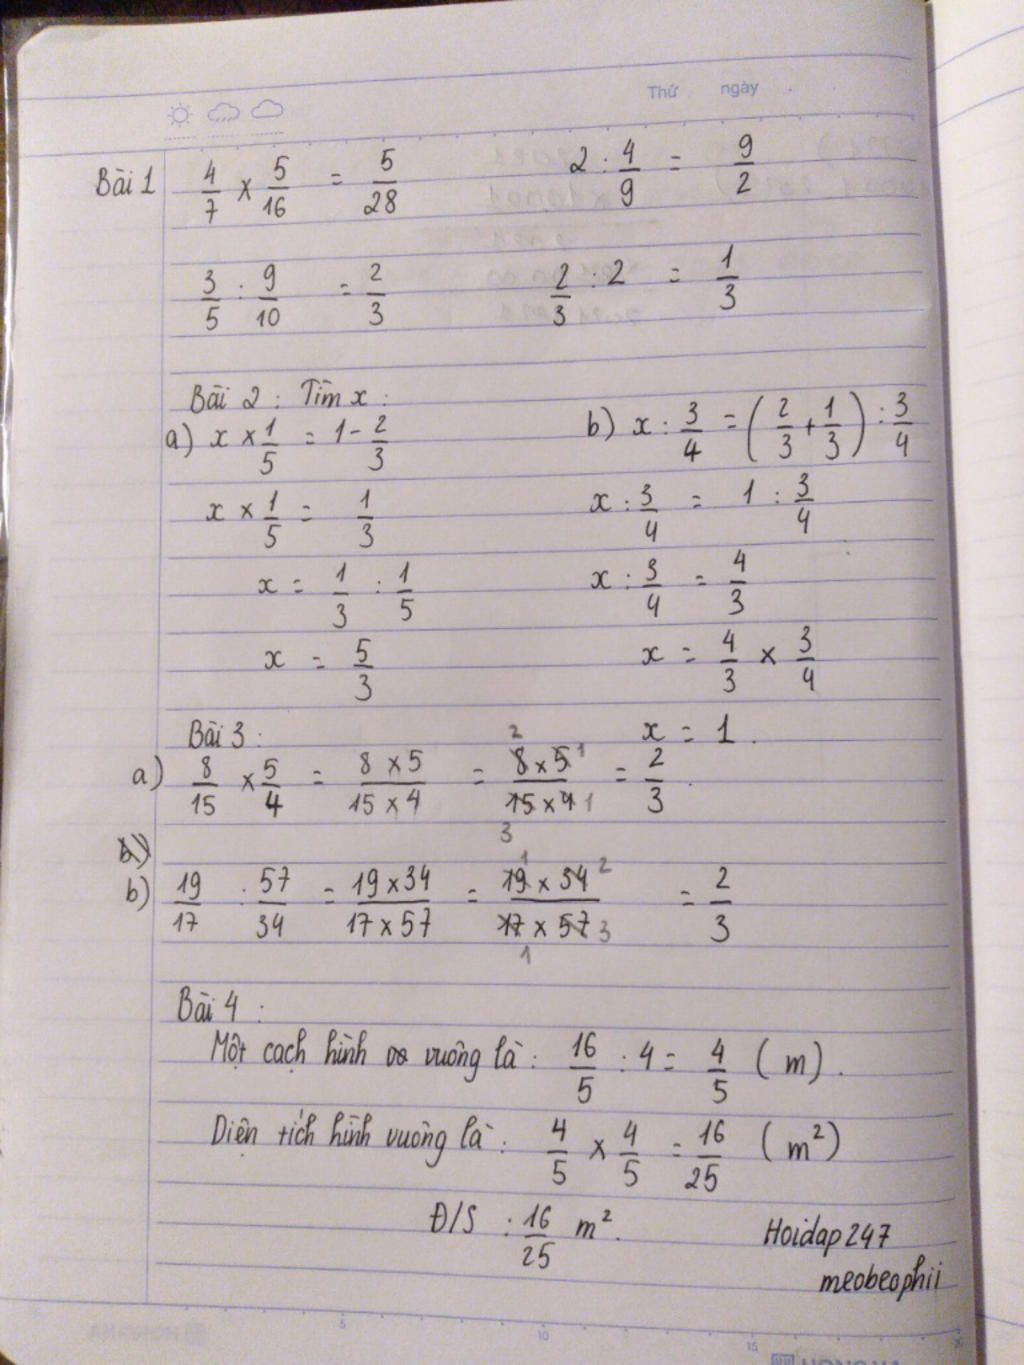 Thứ ngày
Bài 1 4/7 × 5/16 = 5/28 2 : 4/9 = 9/2
3/5 : 9/10 = 2/3 2/3 : 2 = 1/3
Bài 2 : Tìm x :
a) x × 1/5 = 1 - 2/3 b) x : 3/4 = (2/3 + 1/3) : 3/4
x × 1/5 = 1/3 x : 3/4 = 1 : 3/4
x = 1/3 : 1/5 x : 3/4 = 4/3
x = 5/3 x = 4/3 × 3/4
Bài 3 : x = 1.
a) 8/15 × 5/4 = 8 × 5/15 × 4 = 8 × 5/15 × 4 = 2/3.
b) 19/17 : 57/34 = 19 × 34/17 × 57 = 19 × 34/17 × 57 = 2/3
Bài 4 :
Một cạch hình vuông là : 16/5 : 4 = 4/5 (m).
Diện tích hình vuông là : 4/5 × 4/5 = 16/25 (m²)
Đ/S : 16/25 m².
Hoidap247
meobeophii
5 10 15